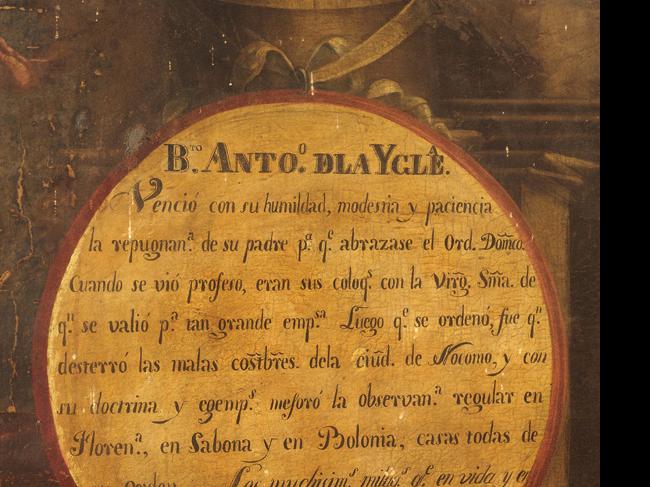 B.ᵗᵒ ANTO.⁰ DLA YGLÊ.
Venció con su humildad, modestia y paciencia
la repugnan.ª de su padre p.ª q.ᵉ abrazase el Ord. Domco.
Cuando se vió profeso, eran sus coloq.ˢ con la Virg. Sma. de
q.ⁿ se valió p.ª tan grande emp.ˢᵃ Luego q.ᵉ se ordenó, fue q.ⁿ
desterró las malas costbres. dela ciud. de Nocomo, y con
su doctrina y egemp.ˢ mejoró la observan.ª regular en
Floren.ª, en Sabona y en Bolonia, casas todas de
orden. Los muchisim.ˢ milag.ˢ q.ᵉ en vida y en